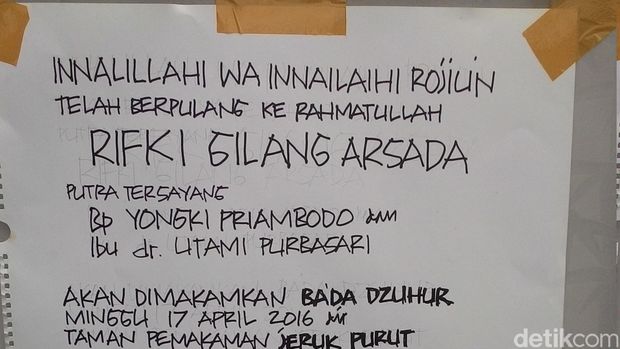 INNALILLAHI WA INNAILAIHI ROJIUN
TELAH BERPULANG KE RAHMATULLAH
RIFKI GILANG ARSADA
PUTRA TERSAYANG
Bp YONGKI PRIAMBODO
Ibu dr. UTAMI PURBASARI
AKAN DIMAKAMKAN BA'DA DZUHUR
MINGGU 17 APRIL 2016
TAMAN PEMAKAMAN JERUK PURUT
detikcom